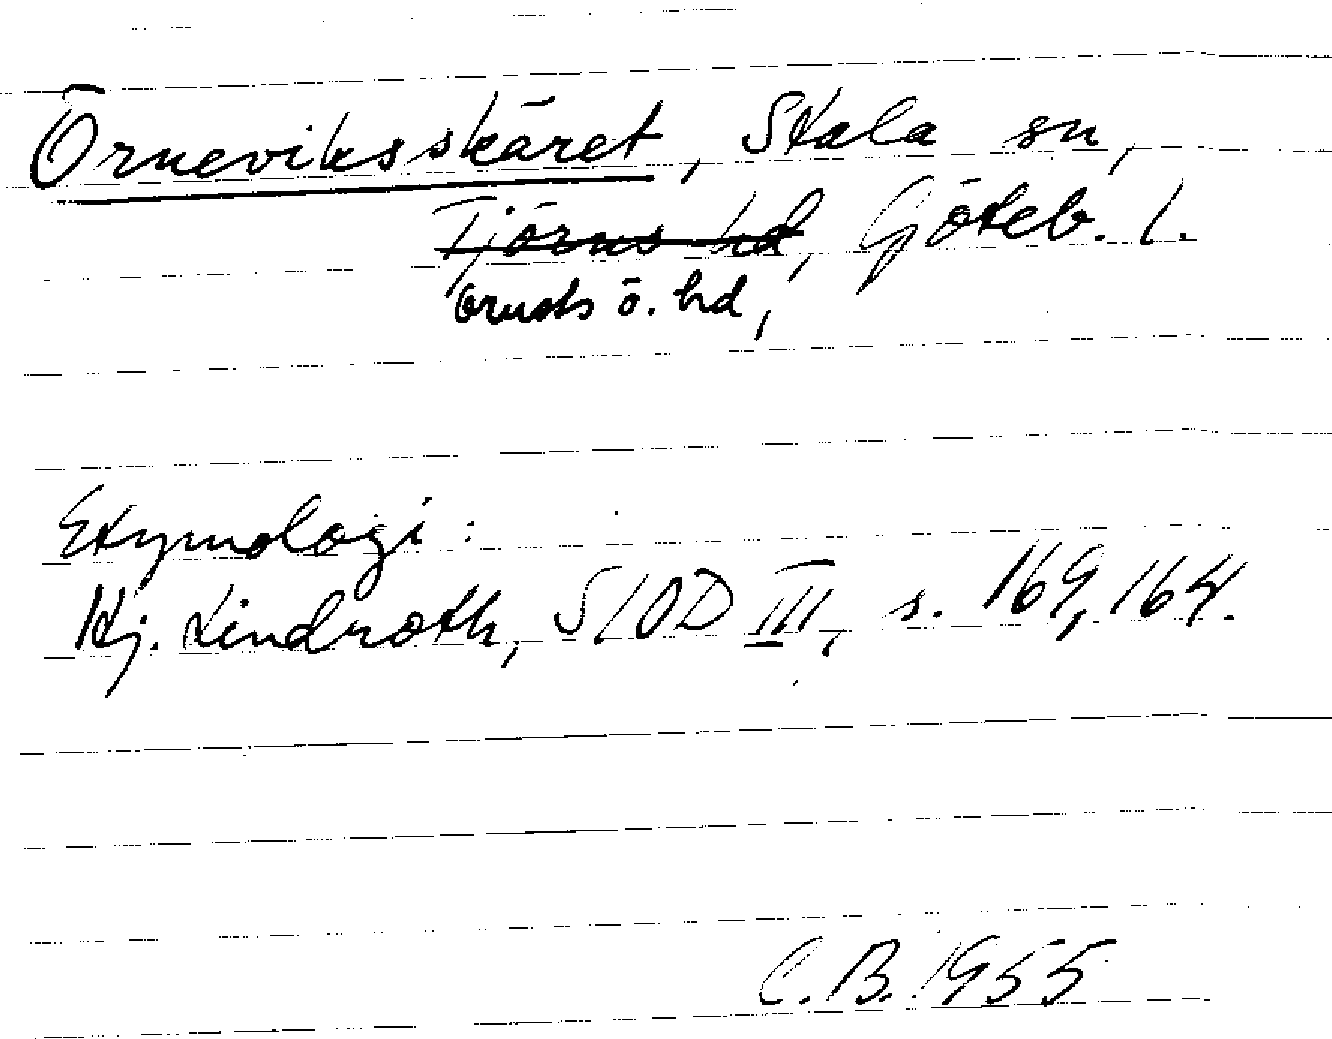 Örneviksskäret, Stala sn,
Tjörns hd, Göteb. l.
Orusts ö. hd,
Etymologi:
Hj. Lindroth, SIOD III, s. 169, 164.
C.B. 1955